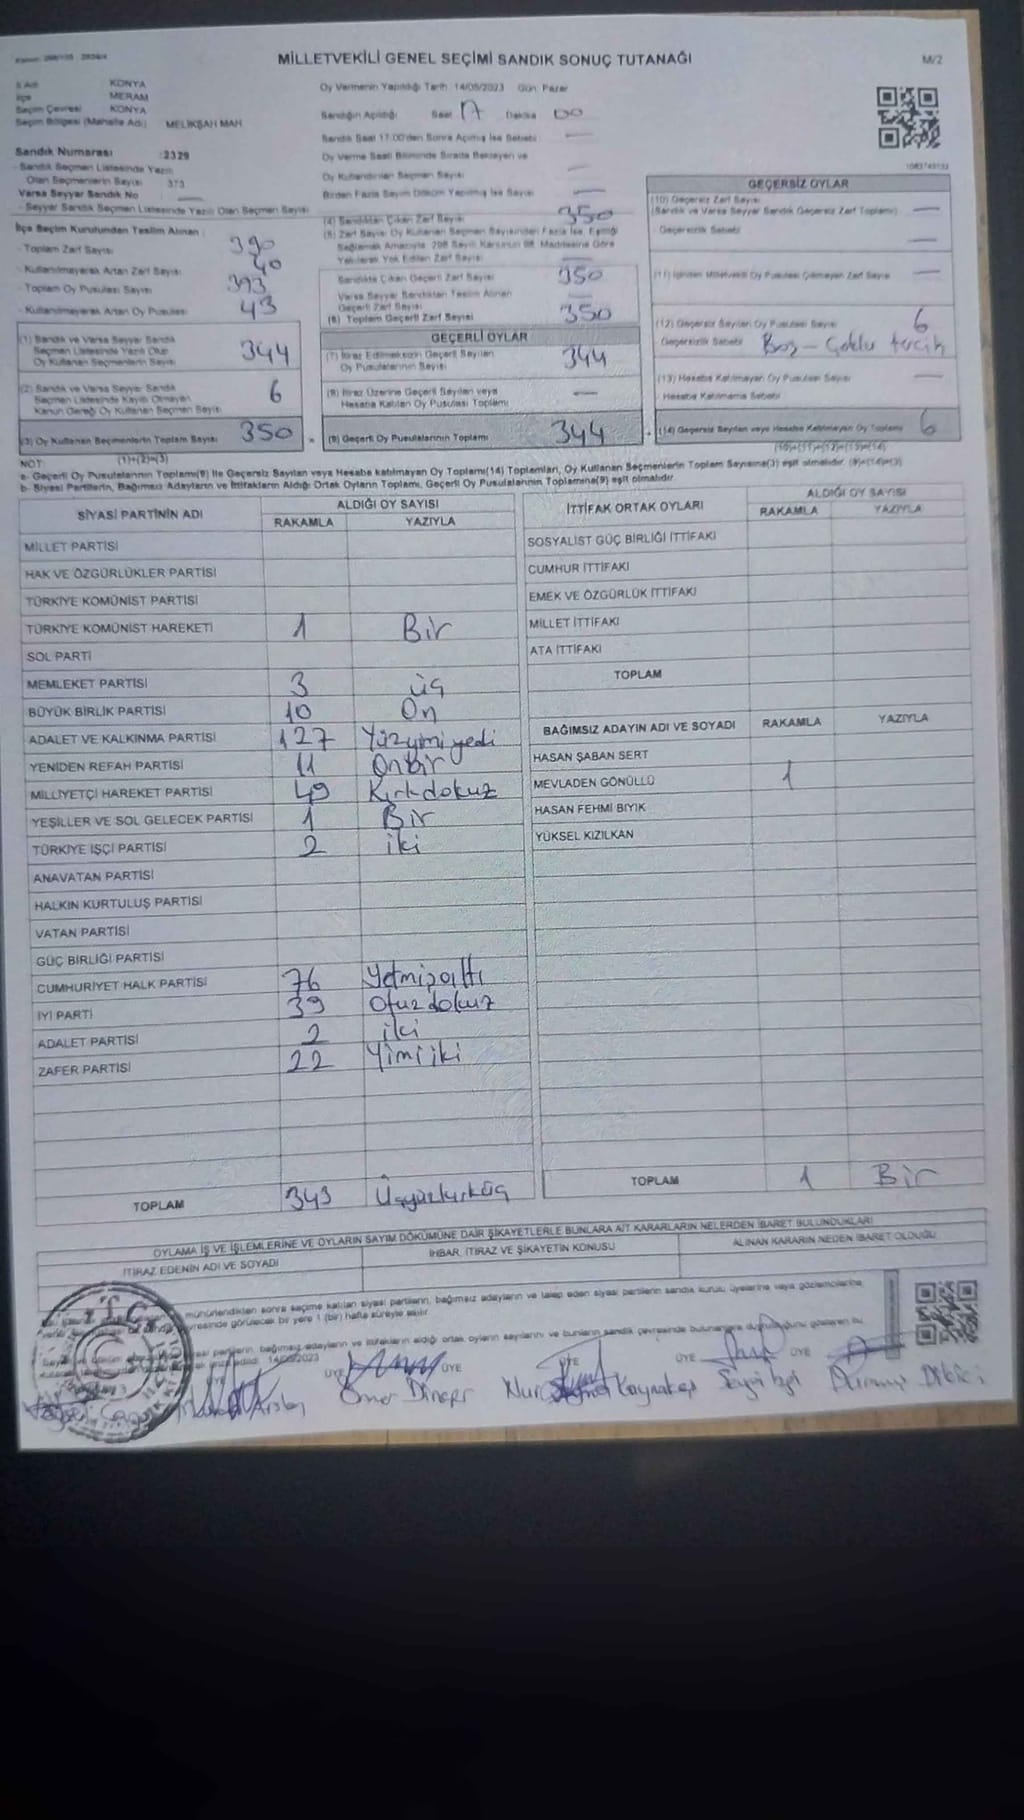 MİLLETVEKİLİ GENEL SEÇİMİ SANDIK SONUÇ TUTANAĞI
M/2
KONYA
İlçe MERAM
Seçim Çevresi KONYA
Seçim Bölgesi (Mahalle Adı) MELİKŞAH MAH
Sandık Numarası :2329
- Sandık Seçmen Listesinde Yazılı
Olan Seçmenlerin Sayısı 373
Varsa Seyyar Sandık No
- Seyyar Sandık Seçmen Listesinde Yazılı Olan Seçmen Sayısı
İlçe Seçim Kurulundan Teslim Alınan :
- Toplam Zarf Sayısı 390
- Kullanılmayarak Artan Zarf Sayısı 40
- Toplam Oy Pusulası Sayısı 393
- Kullanılmayarak Artan Oy Pusulası 43
(1) Sandık ve Varsa Seyyar Sandık
Seçmen Listesinde Yazılı Olup
Oy Kullanan Seçmenlerin Sayısı 344
(2) Sandık ve Varsa Seyyar Sandık
Seçmen Listesinde Kayıtlı Olmayan
Kanun Gereği Oy Kullanan Seçmen Sayısı 6
(3) Oy Kullanan Seçmenlerin Toplam Sayısı 350
(1)+(2)=(3)
Oy Vermenin Yapıldığı Tarih :14/05/2023 Gün: Pazar
Sandığın Açıldığı Saat 17 Dakika 00
Sandık Saat 17:00'den Sonra Açılmış İse Sebebi
Oy Verme Saati Bitiminde Sırada Bekleyen ve
Oy Kullandırılan Seçmen Sayısı
Birden Fazla Sayım Döküm Yapılmış İse Sayısı
(4) Sandıktan Çıkan Zarf Sayısı 350
(5) Zarf Sayısı Oy Kullanan Seçmen Sayısından Fazla İse, Eşitliği
Sağlamak Amacıyla 298 Sayılı Kanunun 98. Maddesine Göre
Yakılarak Yok Edilen Zarf Sayısı
Sandıkta Çıkan Geçerli Zarf Sayısı 350
Varsa Seyyar Sandıktan Teslim Alınan
Geçerli Zarf Sayısı
(6) Toplam Geçerli Zarf Sayısı 350
GEÇERLİ OYLAR
(7) İtiraz Edilmeksizin Geçerli Sayılan
Oy Pusulalarının Sayısı 344
(8) İtiraz Üzerine Geçerli Sayılan veya
Hesaba Katılan Oy Pusulası Toplamı
(9) Geçerli Oy Pusulalarının Toplamı 344
GEÇERSİZ OYLAR
(10) Geçersiz Zarf Sayısı
(Sandık ve Varsa Seyyar Sandık Geçersiz Zarf Toplamı)
Geçersizlik Sebebi
(11) İçinden Milletvekili Oy Pusulası Çıkmayan Zarf Sayısı
(12) Geçersiz Sayılan Oy Pusulası Sayısı 6
Geçersizlik Sebebi Boş - Çoklu tercih
(13) Hesaba Katılmayan Oy Pusulası Sayısı
- Hesaba Katılmama Sebebi
(14) Geçersiz Sayılan veya Hesaba Katılmayan Oy Toplamı 6
(10)+(11)+(12)+(13)=(14)
NOT:
a- Geçerli Oy Pusulalarının Toplamı(9) ile Geçersiz Sayılan veya Hesaba katılmayan Oy Toplamı(14) Toplamları, Oy Kullanan Seçmenlerin Toplam Sayısına(3) eşit olmalıdır. (9)+(14)=(3)
b- Siyasi Partilerin, Bağımsız Adayların ve İttifakların Aldığı Ortak Oyların Toplamı, Geçerli Oy Pusulalarının Toplamına(9) eşit olmalıdır.
SİYASİ PARTİNİN ADI ALDIĞI OY SAYISI
RAKAMLA YAZIYLA
MİLLET PARTİSİ
HAK VE ÖZGÜRLÜKLER PARTİSİ
TÜRKİYE KOMÜNİST PARTİSİ
TÜRKİYE KOMÜNİST HAREKETİ 1 Bir
SOL PARTİ
MEMLEKET PARTİSİ 3 üç
BÜYÜK BİRLİK PARTİSİ 10 On
ADALET VE KALKINMA PARTİSİ 127 Yüzyirmiyedi
YENİDEN REFAH PARTİSİ 11 Onbir
MİLLİYETÇİ HAREKET PARTİSİ 49 Kırkdokuz
YEŞİLLER VE SOL GELECEK PARTİSİ 1 Bir
TÜRKİYE İŞÇİ PARTİSİ 2 iki
ANAVATAN PARTİSİ
HALKIN KURTULUŞ PARTİSİ
VATAN PARTİSİ
GÜÇ BİRLİĞİ PARTİSİ
CUMHURİYET HALK PARTİSİ 76 Yetmişaltı
İYİ PARTİ 39 Otuzdokuz
ADALET PARTİSİ 2 iki
ZAFER PARTİSİ 22 Yirmiiki
TOPLAM 343 Üçyüzkırküç
İTTİFAK ORTAK OYLARI ALDIĞI OY SAYISI
RAKAMLA YAZIYLA
SOSYALİST GÜÇ BİRLİĞİ İTTİFAKI
CUMHUR İTTİFAKI
EMEK VE ÖZGÜRLÜK İTTİFAKI
MİLLET İTTİFAKI
ATA İTTİFAKI
TOPLAM
BAĞIMSIZ ADAYIN ADI VE SOYADI RAKAMLA YAZIYLA
HASAN ŞABAN SERT
MEVLADEN GÖNÜLLÜ 1
HASAN FEHMİ BIYIK
YÜKSEL KIZILKAN
TOPLAM 1 Bir
OYLAMA İŞ VE İŞLEMLERİNE VE OYLARIN SAYIM DÖKÜMÜNE DAİR ŞİKAYETLERLE BUNLARA AİT KARARLARIN NELERDEN İBARET BULUNDUKLARI
İTİRAZ EDENİN ADI VE SOYADI İHBAR, İTİRAZ VE ŞİKAYETİN KONUSU ALINAN KARARIN NEDEN İBARET OLDUĞU
mühürlendikten sonra seçime katılan siyasi partilerin, bağımsız adayların ve talep eden siyasi partilerin sandık kurulu üyelerine veya gözlemcilerine
çevresinde görülecek bir yere 1 (bir) hafta süreyle asılır.
partilerin, bağımsız adayların ve ittifakların aldığı ortak oyların sayılarını ve bunların sandık çevresinde bulunanlara duyurulduğunu gösteren bu
14/05/2023
ÜYE ÜYE ÜYE ÜYE
Ömer Dinçer